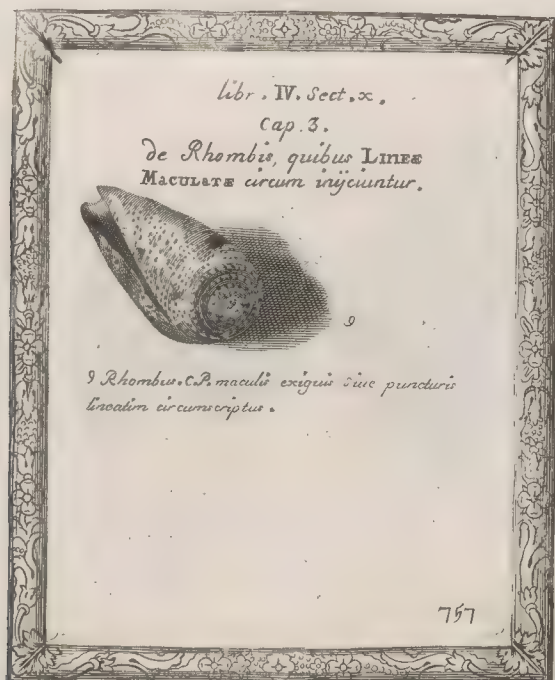 libr. IV. Sect. x.
Cap. 3.
de Rhombis, quibus LINEÆ
MACULATÆ circum inijciuntur.
9
9
9 Rhombus. C.P. maculis exiguis siue puncturis
lineatim circumscriptus.
757